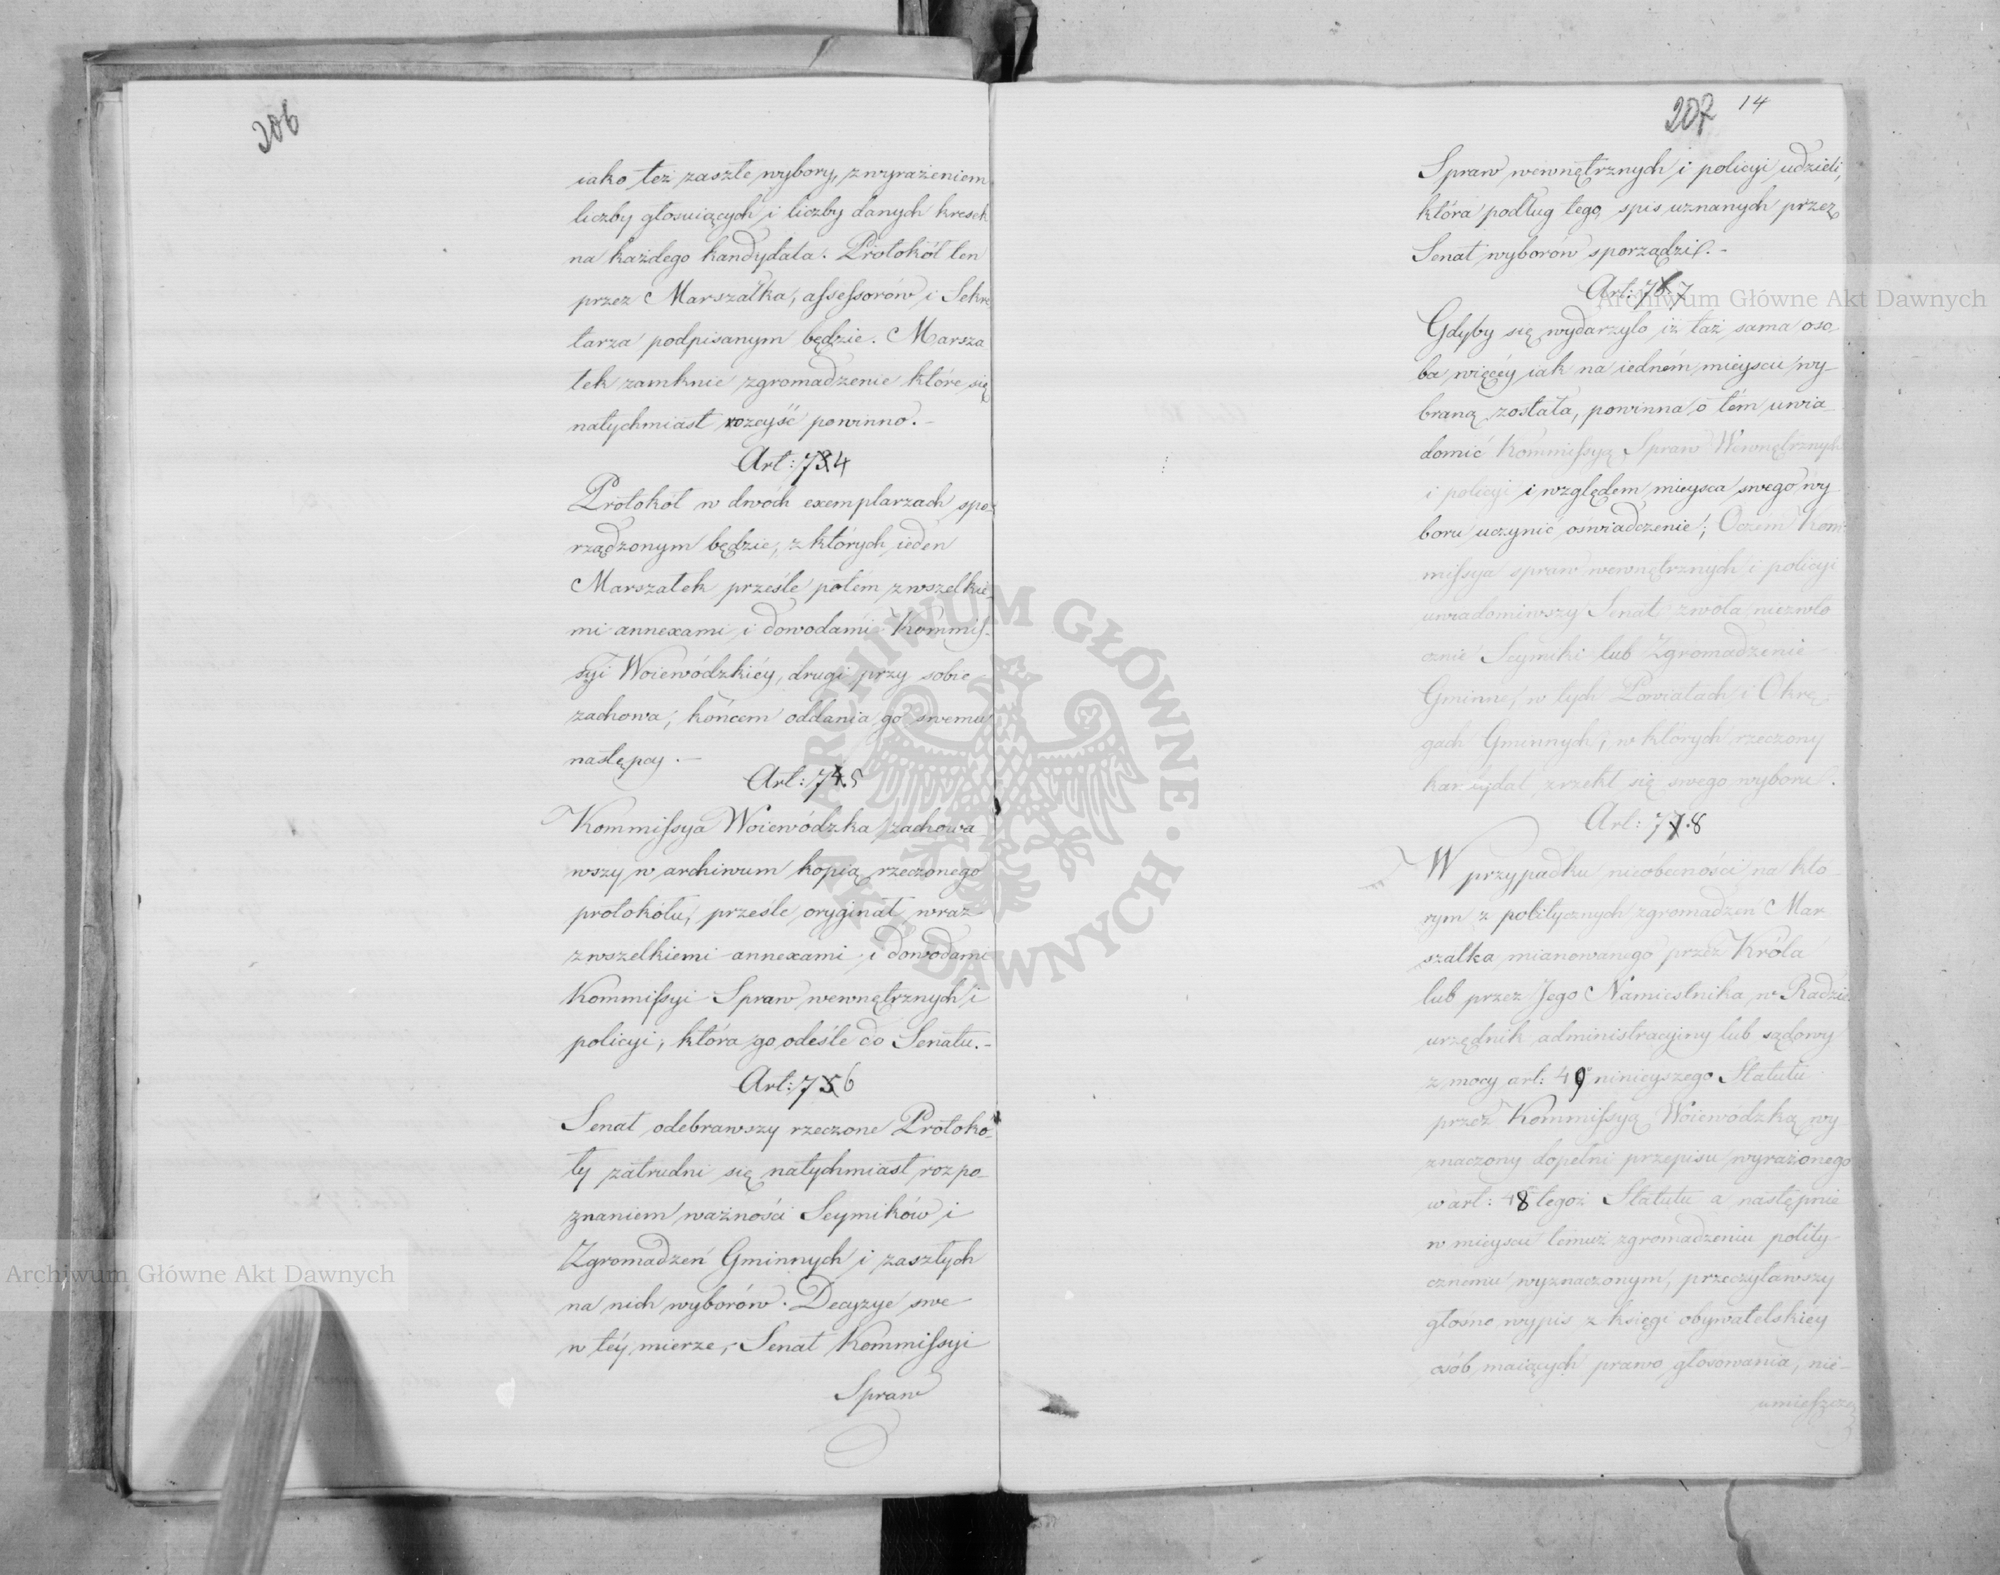 206
iako też zaszłe wybory, z wyrażeniem
liczby głosuiących i liczby danych kresek
na każdego kandydata. Protokół ten
przez Marszałka, assessorów i Sekre
tarza podpisanym będzie. Marsza
łek zamknie zgromadzenie które się
natychmiast rozeyść powinno.-
Art: 734
Protokół w dwóch exemplarzach spo-
rządzonym będzie, z których ieden
Marszałek prześle potém z wszelkie-
mi annexami i dowodami Kommis-
syi Woiewódzkiéy, drugi przy sobie
zachowa, końcem oddania go swemu
następcy.-
Art: 745
Kommissya Woiewódzka zachowa-
wszy w archiwum kopią rzeczonego
protokołu, prześle oryginał wraz
z wszelkiemi annexami i dowodami
Kommissyi Spraw wewnętrznych i
policyi, która go odeśle do Senatu.-
Art: 756
Senat odebrawszy rzeczone Protokó-
ły zatrudni się natychmiast rozpo-
znaniem ważności Seymików i
Zgromadzeń Gminnych i zaszłych
na nich wyborów. Decyzye swe
w téy mierze, Senat Kommissyi
Spraw
207 14
Spraw wewnętrznych i policyi udzieli,
która podług tego spis uznanych przez
Senat wyborów sporządzi.-
Art: 767
Gdyby się wydarzyło iż taż sama oso-
ba więcéy iak na iedném mieyscu wy-
braną została, powinna o tém uwia-
domić Kommissyą Spraw Wewnętrznych
i policyi i względem mieysca swego wy
boru uczynić oświadczenie; Oczém Kom-
missya spraw wewnętrznych i policyi
uwiadomiwszy Senat zwoła niezwło
cznie Seymiki lub Zgromadzenie
Gminne, w tych Powiatach i Okrę-
gach Gminnych, w których rzeczony
kandydat zrzekł się swego wyboru.
Art: 77.8
W przypadku nieobecności na któ-
rym z politycznych zgromadzeń Mar
szałka mianowanego przez Króla
lub przez Jego Namiestnika w Radzie
urzędnik administracyiny lub sądowy
z mocy art: 49 ninieyszego Statutu
przez Kommissyą Woiewódzką wy
znaczony dopełni przepisu wyrażonego
w art: 48 tegoż Statutu a następnie
w mieyscu temuż zgromadzeniu polity-
cznemu wyznaczonym, przeczytawszy
głośno wypis z księgi obywatelskiéy
osób maiących prawo głosowania, nie-
umieszczo
Archiwum Główne Akt Dawnych
Archiwum Główne Akt Dawnych
ARCHIWUM GŁÓWNE AKT DAWNYCH